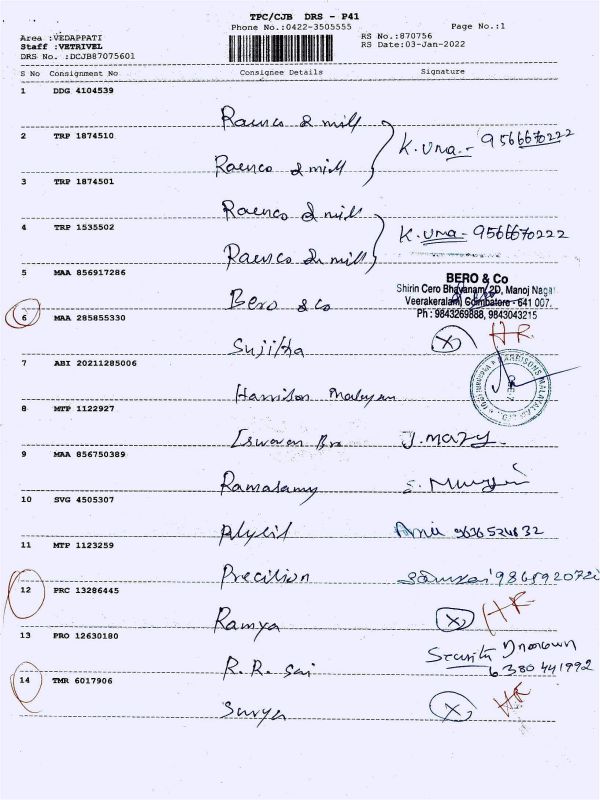 TPC/CJB DRS - P41
Phone No.:0422-3505555 Page No.:1
Area :VEDAPPATI RS No.:870756
Staff :VETRIVEL RS Date:03-Jan-2022
DRS No. :DCJB87075601
S No Consignment No Consignee Details Signature
1 DDG 4104539
Raenco & mill
2 TRP 1874510
K. Uma.- 9566670222
Raenco & mill
3 TRP 1874501
Raenco & mill
4 TRP 1535502
K. Uma- 9566670222
Raenco & mill
5 MAA 856917286
BERO & Co
Shirin Cero Bhavanam, 2D, Manoj Nagar
Bero & co
Veerakeralam, Coimbatore - 641 007.
6 MAA 285855330
Ph : 9843269888, 9843043215
Sujitha X HR
7 ABI 20211285006
HARRISONS MALAYALAM LTD
Harrison Malayam
8 MTP 1122927
Eswaran Bro J. Mary.
9 MAA 856750389
Ramasamy S.
10 SVG 4505307
9636524832
11 MTP 1123259
Precision 986892072
12 PRC 13286445
Ramya X HR
13 PRO 12630180
Security
R. R. Sai 6380441992
14 TMR 6017906
Surya X HR